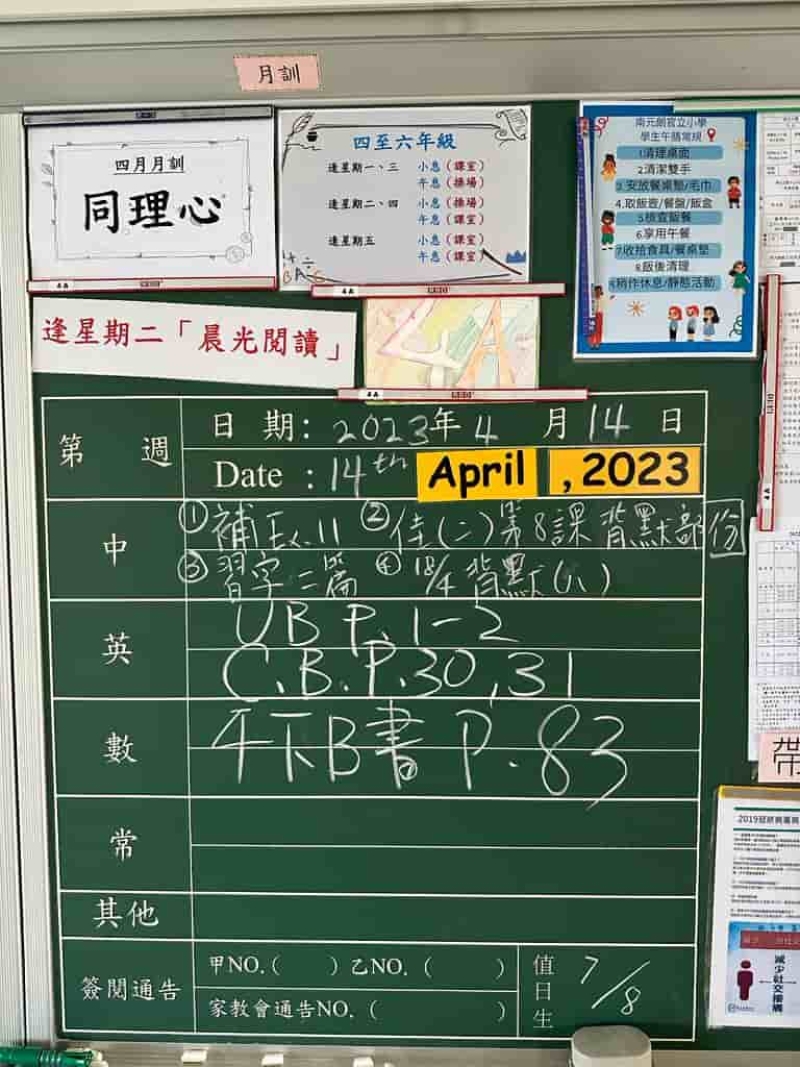 月訓
四月月訓
同理心
四至六年級
逢星期一、三 小息(課室)
午息(操場)
逢星期二、四 小息(操場)
午息(課室)
逢星期五 小息(課室)
午息(課室)
南元朗官立小學
學生午膳常規
1清理桌面
2清潔雙手
3.安放餐桌墊/毛巾
4.取飯壺/餐盤/飯盒
5.檢查飯餐
6.享用午餐
7收拾食具/餐桌墊
8.飯後清理
9稍作休息/靜態活動
逢星期二「晨光閱讀」
4A
第 週
日 期: 2023年 4 月 14 日
Date : 14th April , 2023
中
①補Ex.11 ②佳(二)第8課 背默部份
③習字二篇 ④ 18/4 背默(八)
英
UB P.1-2
C.B.P.30,31
數
4下B書 P.83
常
其他
簽閱通告
甲NO.( ) 乙NO.( )
家教會通告NO.( )
值日生 7/8
帶
減少社交接觸